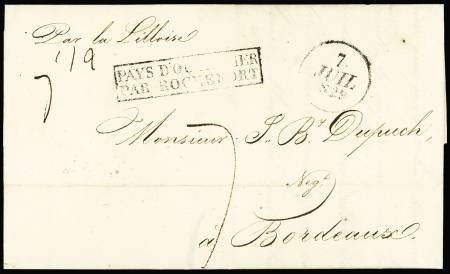 Par la Lilloise
1/9
PAYS D'OUTREMER
PAR ROCHEFORT
7
JUIL
829
Monsieur J. B.te Dupuch
Negt
à Bordeaux.